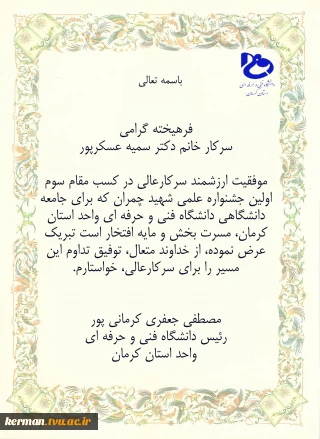 باسمه تعالی
دانشگاه فنی و حرفه ای
استان کرمان
فرهیخته گرامی
سرکار خانم دکتر سمیه عسکرپور
موفقیت ارزشمند سرکارعالی در کسب مقام سوم
اولین جشنواره علمی شهید چمران که برای جامعه
دانشگاهی دانشگاه فنی و حرفه ای واحد استان
کرمان، مسرت بخش و مایه افتخار است تبریک
عرض نموده، از خداوند متعال، توفیق تداوم این
مسیر را برای سرکارعالی، خواستارم.
مصطفی جعفری کرمانی پور
رئیس دانشگاه فنی و حرفه ای
واحد استان کرمان
kerman.tvu.ac.ir